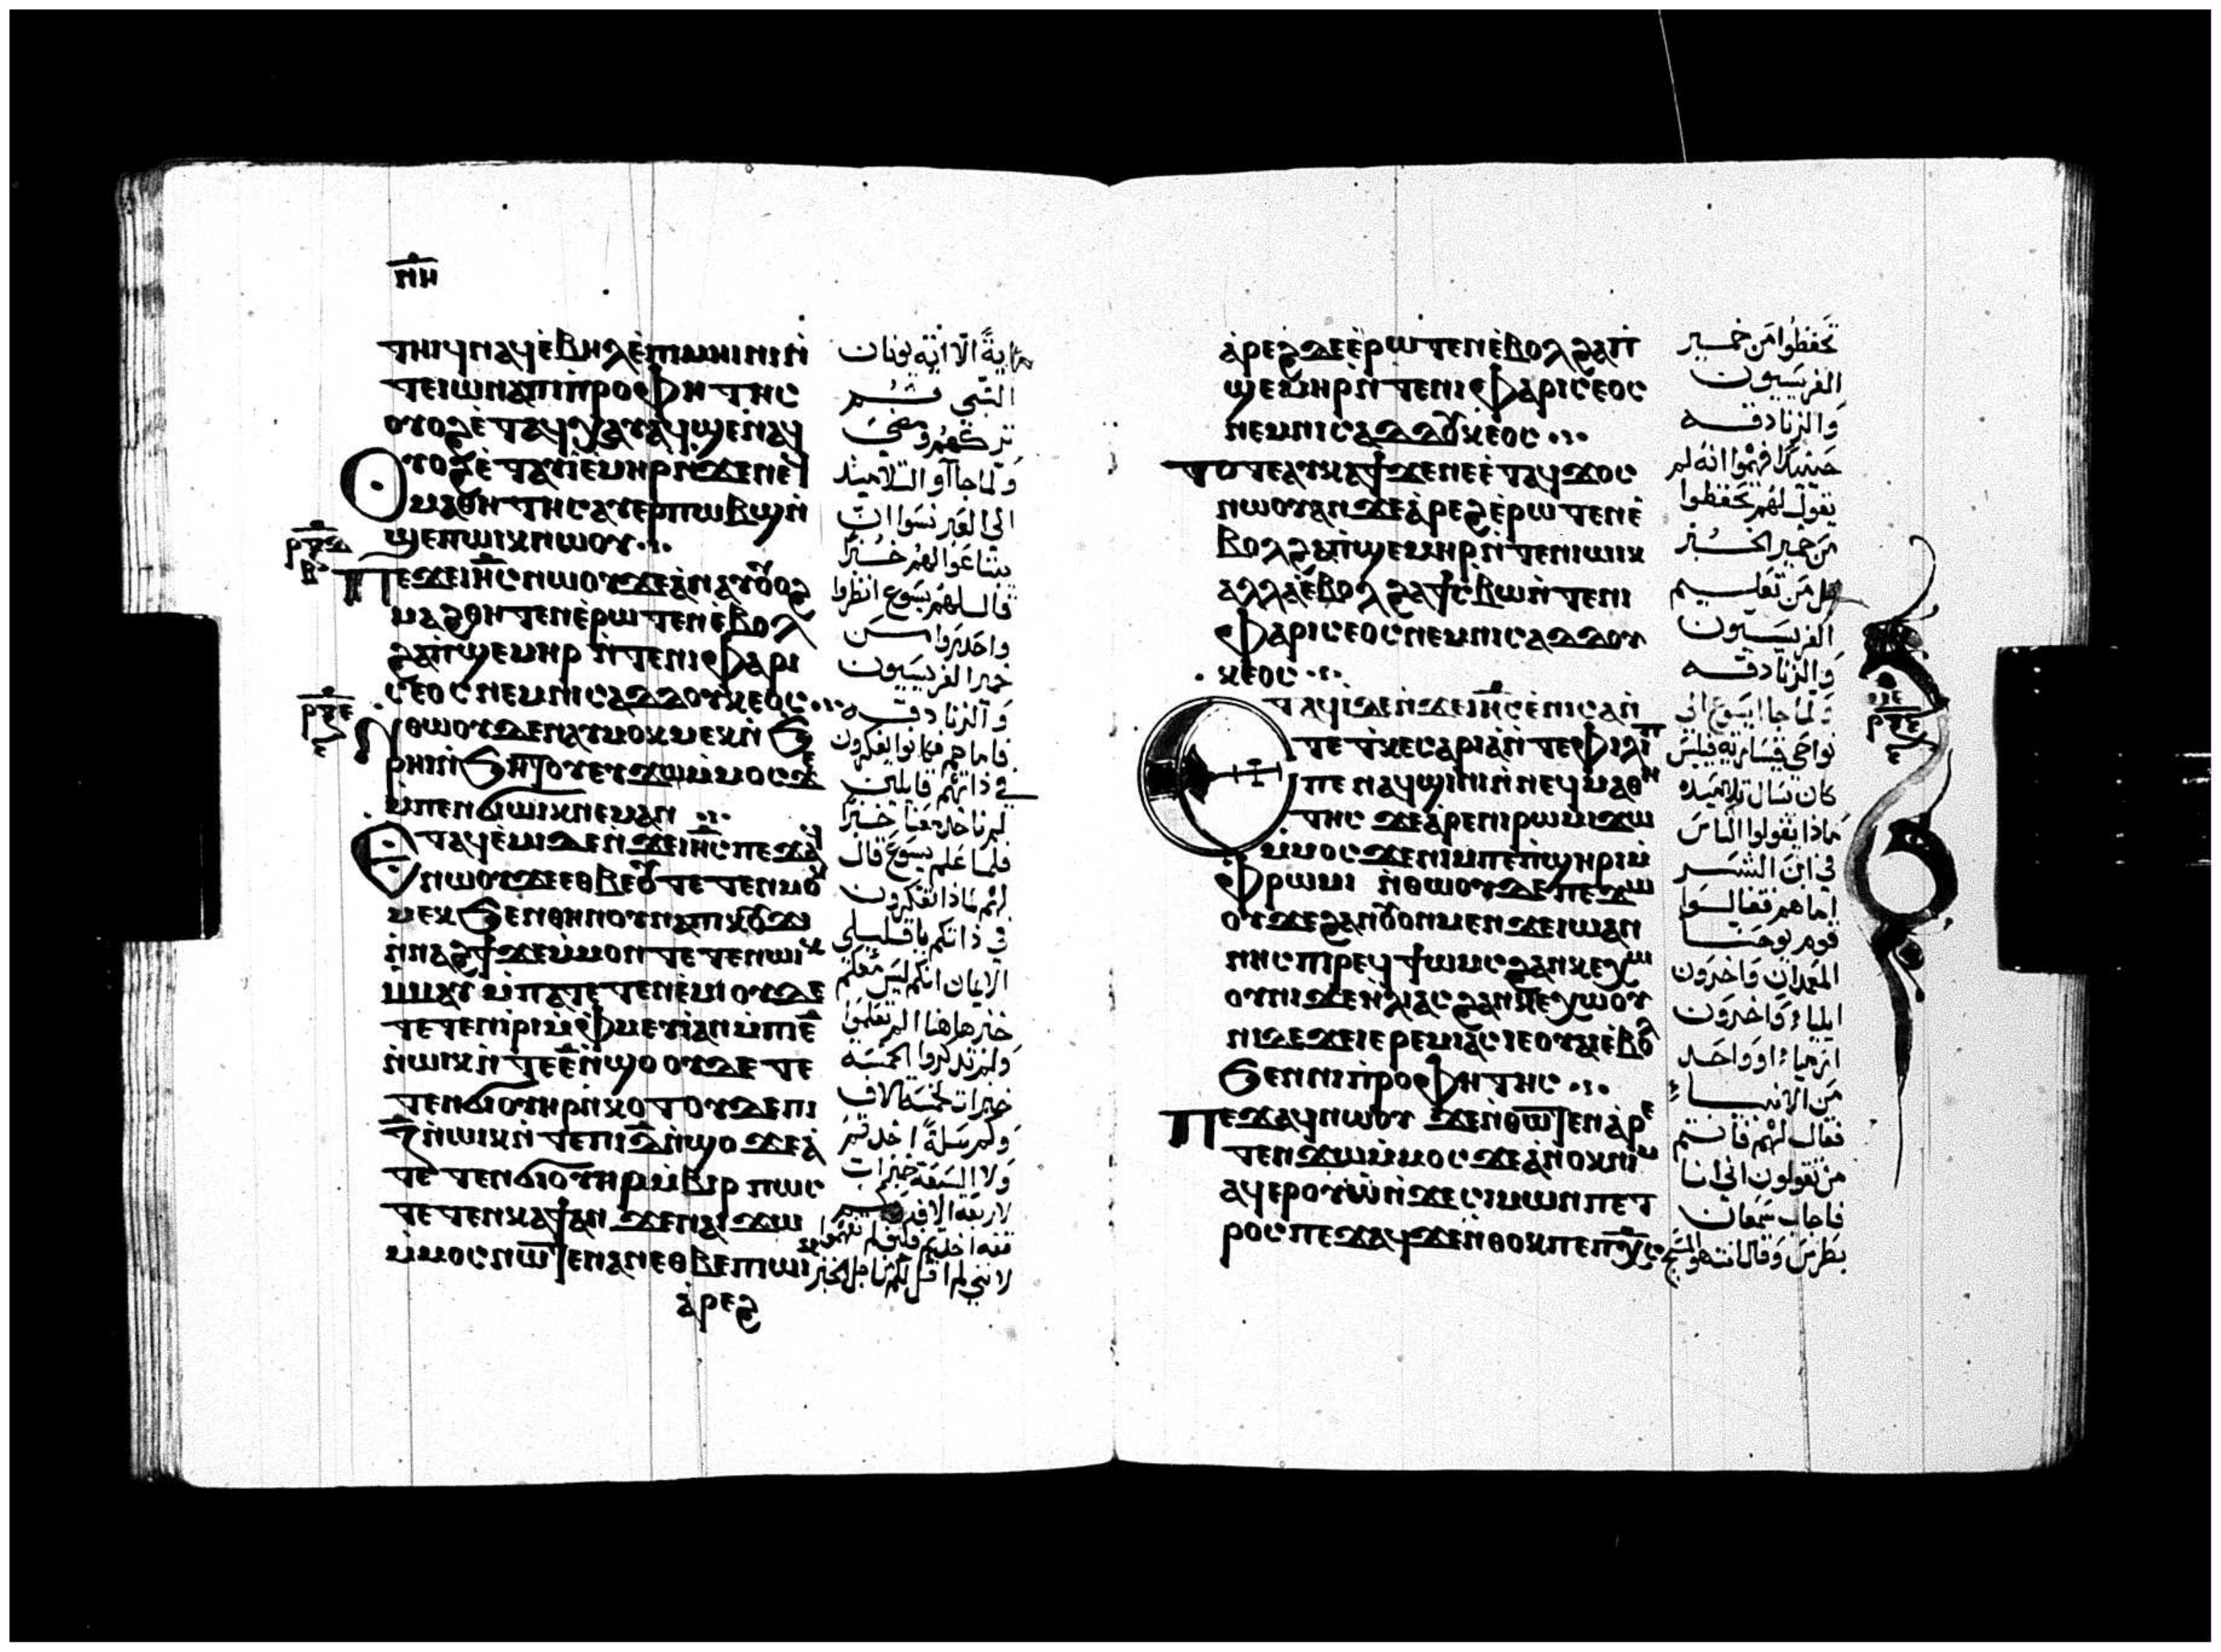 ⲡⲏ
ⲧⲏⲓϥ ⲛⲁϥ ⲉ̀ⲃⲏⲗ ⲉ̀ⲡⲓⲙⲏⲓⲛⲓ ⲛ̀
ⲧⲉ ⲓⲱⲛⲁ ⲡⲓⲡⲣⲟⲫⲏⲧⲏⲥ
ⲟⲩⲟϩ ⲉ̀ⲧⲁϥⲭⲁⲩ ⲁϥϣⲉⲛⲁϥ
ⲟⲩⲟϩ ⲉ̀ⲧⲁⲩⲓ̀ ⲉ̀ⲙⲏⲣ ⲛ̀ϫⲉ ⲛⲉϥ
ⲙⲁⲑⲏⲧⲏⲥ ⲁⲩⲉⲣⲡⲱⲃϣ ⲛ̀
ϣⲉⲡ ⲱⲓⲕ ⲛⲱⲟⲩ
ⲡⲉϫⲉ ⲓⲏ̅ⲥ ⲛⲱⲟⲩ ϫⲉ ⲁ̀ⲛⲁⲩ ⲟⲩⲟϩ
ⲙⲁϩⲑⲏⲧⲉⲛ ⲉ̀ⲣⲱⲧⲉⲛ ⲉ̀ⲃⲟⲗ
ϩⲁ ⲡ̀ϣⲉⲙⲏⲣ ⲛ̀ⲧⲉ ⲛⲓⲫⲁⲣⲓ
ⲥⲉⲟⲥ ⲛⲉⲙ ⲛⲓⲥⲁⲇⲇⲟⲩⲕⲉⲟⲥ
ⲛ̀ⲑⲱⲟⲩ ⲇⲉ ⲛⲁⲩⲙⲟⲕⲙⲉⲕ ⲛ̀ϧ
ⲣⲏⲓ ⲛ̀ϧⲏⲧⲟⲩ ⲉⲩϫⲱ ⲙ̀ⲙⲟⲥ ϫⲉ
ⲙ̀ⲡⲉⲛϭⲓ ⲱⲓⲕ ⲛⲉⲙⲁⲛ
ⲉⲧⲁϥⲉ̀ⲙⲓ ⲇⲉ ⲛ̀ϫⲉ ⲓⲏ̅ⲥ ⲡⲉϫⲁϥ
ⲛⲱⲟⲩ ϫⲉ ⲉⲑⲃⲉⲟⲩ ⲧⲉⲧⲉⲛⲙⲟ
ⲕⲙⲉⲕ ϧⲉⲛ ⲑⲏⲛⲟⲩ ⲛⲁⲡⲓⲕⲟⲩϫⲓ
ⲛ̀ⲛⲁϩϯ ϫⲉ ⲙ̀ⲙⲟⲛ ⲧⲉⲧⲉⲛ ⲱⲓⲕ
ⲙ̀ⲙⲁⲩ ⲙ̀ⲡⲁⲧⲉⲧⲉⲛⲉ̀ⲙⲓ ⲟⲩⲇⲉ
ⲧⲉⲧⲉⲛⲓ̀ⲣⲓ ⲙ̀ⲫⲙⲉⲩⲓ ⲁⲛ ⲙ̀ⲡⲓⲉ̅
ⲛ̀ⲱⲓⲕ ⲛ̀ⲧⲉ ⲡⲓⲉ̅ ⲛ̀ϣⲟ ⲟⲩⲇⲉ ⲧⲉ
ⲧⲉⲛϭⲓ ⲟⲩⲏⲣ ⲛ̀ⲕⲟⲧ ⲟⲩⲇⲉ ⲡⲓ
ⲍ̅ ⲛ̀ⲱⲓⲕ ⲛ̀ⲧⲉ ⲡⲓⲇ̅ ⲛ̀ϣⲟ ϫⲉ ⲁ̀
ⲧⲉⲧⲉⲛϭⲓ ⲟⲩⲏⲣ ⲙ̀ⲃⲓⲣ ⲡⲱⲥ
ⲧⲉⲧⲉⲛⲕⲁϯ ⲁⲛ ϫⲉ ⲛⲁⲓϫⲱ
ⲙ̀ⲙⲟⲥ ⲛⲱⲧⲉⲛ ⲁⲛ ⲉⲑⲃⲉ ⲡⲓⲱⲓⲕ
ⲁ̀ⲣⲉϩ
اية الا اية يونان
النبي ثم
تركهم ومضى
ولما جاآو التلاميذ
الى العبر نسوا ان
يبتاعوا لهم خبزا
قال لهم يسوع انظروا
واحذروا من
خمير الفريسيون
والزنادقه
فاما هم فكانوا يفكرون
في ذاتهم قايلين
لم ناخد معنا خبزا
فلما علم يسوع قال
لهم لماذا تفكرون
في ذاتكم يا قليلي
الايمان انكم ليس معكم
خبز هاهنا الم تعلموا
ولم تذكروا الخمسه
خبزات لخمسة الاف
وكم سلة اخذتم
ولا السبعة خبزات
لاربعة الاف وكم
قفه اخذتم فكيف لم تفهموا
لانني لم اقل لكم من اجل الخبز
ⲁ̀ⲣⲉϩ ⲇⲉ ⲉ̀ⲣⲱⲧⲉⲛ ⲉ̀ⲃⲟⲗ ϩⲁ ⲡ̀
ϣⲉⲙⲏⲣ ⲛ̀ⲧⲉ ⲛⲓⲫⲁⲣⲓⲥⲉⲟⲥ
ⲛⲉⲙ ⲛⲓⲥⲁⲇⲇⲟⲩⲕⲉⲟⲥ
ⲧⲟⲧⲉ ⲁⲩⲕⲁϯ ϫⲉ ⲛⲉⲉ̀ⲧⲁϥϫⲟⲥ
ⲛⲱⲟⲩ ⲁⲛ ϫⲉ ⲁ̀ⲣⲉϩ ⲉ̀ⲣⲱⲧⲉⲛ ⲉ̀
ⲃⲟⲗ ϩⲁ ⲡ̀ϣⲉⲙⲏⲣ ⲛ̀ⲧⲉ ⲛⲓⲱⲓⲕ
ⲁⲗⲗⲁ ⲉ̀ⲃⲟⲗ ϩⲁ ϯⲥ̀ⲃⲱ ⲛ̀ⲧⲉ ⲛⲓ
ⲫⲁⲣⲓⲥⲉⲟⲥ ⲛⲉⲙ ⲛⲓⲥⲁⲇⲇⲟⲩ
ⲕⲉⲟⲥ
ⲉⲧⲁϥⲓ̀ ⲇⲉ ⲛ̀ϫⲉ ⲓⲏ̅ⲥ ⲉ̀ⲛⲓⲥⲁ ⲛ̀
ⲧⲉ ϯⲕⲉⲥⲁⲣⲓⲁ ⲛ̀ⲧⲉ ⲫⲓⲗⲓⲡ
ⲡⲉ ⲛⲁϥϣⲓⲛⲓ ⲛ̀ⲛⲉϥⲙⲁⲑⲏ
ⲧⲏⲥ ϫⲉ ⲁ̀ⲣⲉ ⲛⲓⲣⲱⲙⲓ ϫⲱ
ⲙ̀ⲙⲟⲥ ϫⲉ ⲛⲓⲙ ⲡⲉ ⲡ̀ϣⲏⲣⲓ ⲙ̀
ⲫⲣⲱⲙⲓ ⲛ̀ⲑⲱⲟⲩ ⲇⲉ ⲡⲉϫⲱ
ⲟⲩ ϫⲉ ϩⲁⲛⲟⲩⲟⲛ ⲙⲉⲛ ϫⲉ ⲓⲱⲁⲛ
ⲛⲏⲥ ⲡⲓⲣⲉϥϯⲱⲙⲥ ϩⲁⲛⲕⲉⲭⲱ
ⲟⲩⲛⲓ ϫⲉ ⲏ̀ⲗⲓⲁⲥ ϩⲁⲛⲕⲉⲭⲱⲟⲩ
ⲛⲓ ⲇⲉ ϫⲉ ⲓⲉⲣⲉⲙⲓⲁⲥ ⲓⲉ ⲟⲩⲁⲓ ⲉ̀ⲃⲟⲗ
ϧⲉⲛ ⲛⲓⲡ̀ⲣⲟⲫⲏⲧⲏⲥ
ⲡⲉϫⲁϥ ⲛⲱⲟⲩ ϫⲉ ⲛ̀ⲑⲱⲧⲉⲛ ⲁ̀ⲣⲉ
ⲧⲉⲛϫⲱ ⲙ̀ⲙⲟⲥ ϫⲉ ⲁ̀ⲛⲟⲕ ⲛⲓⲙ
ⲁϥⲉⲣⲟⲩⲱ̀ ⲛ̀ϫⲉ ⲥⲓⲙⲱⲛ ⲡⲉⲧ
ⲣⲟⲥ ⲡⲉϫⲁϥ ϫⲉ ⲛ̀ⲑⲟⲕ ⲡⲉ ⲡⲭ̅ⲥ
تحفظوا من خمير
الفريسيون
والزنادقه
حينيذ فهموا انه لم
يقول لهم تحفظوا
من خمير الخبز
بل من تعليم
الفريسيون
والزنادقه
ولما جا يسوع الى
نواحي قيسارية فيلبس
كان يسال تلاميذه
ماذا يقولوا الناس
في ابن البشر
اما هم فقالوا
قوم يوحنا
المعمدان واخرون
ايلياء واخرون
ارمياء او واحد
من الانبياء
فقال لهم فانتم
من تقولون اني انا
فاجاب سمعان
بطرس وقال انت هو المسيح